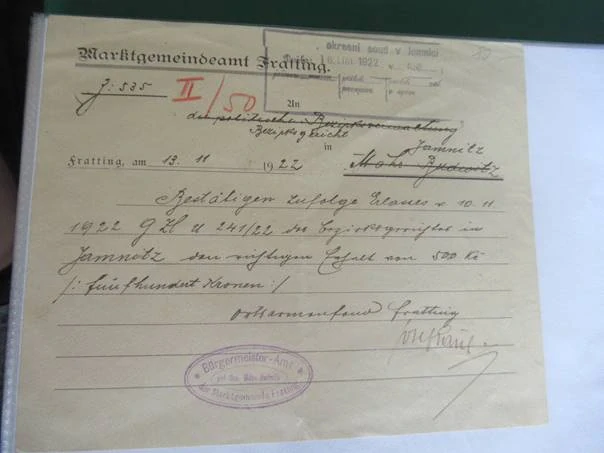 okresní soud v Jamnici
1922
Marktgemeindeamt Fratting.
Z: 535
II/50
An
die politische Bezirksverwaltung
Bezirksgericht
in Jamnitz
Mähr. Budwitz
Fratting, am 13. 11 1922
Bestätigen zufolge Erlasses v. 10. 11
1922 G Zl U 241/22 des Bezirksgerichtes in
Jamnitz den richtigen Erhalt von 500 Kč
/: fünfhundert Kronen :/
Ortsarmenfond Fratting
Bürgermeister-Amt
der Marktgemeinde Fratting